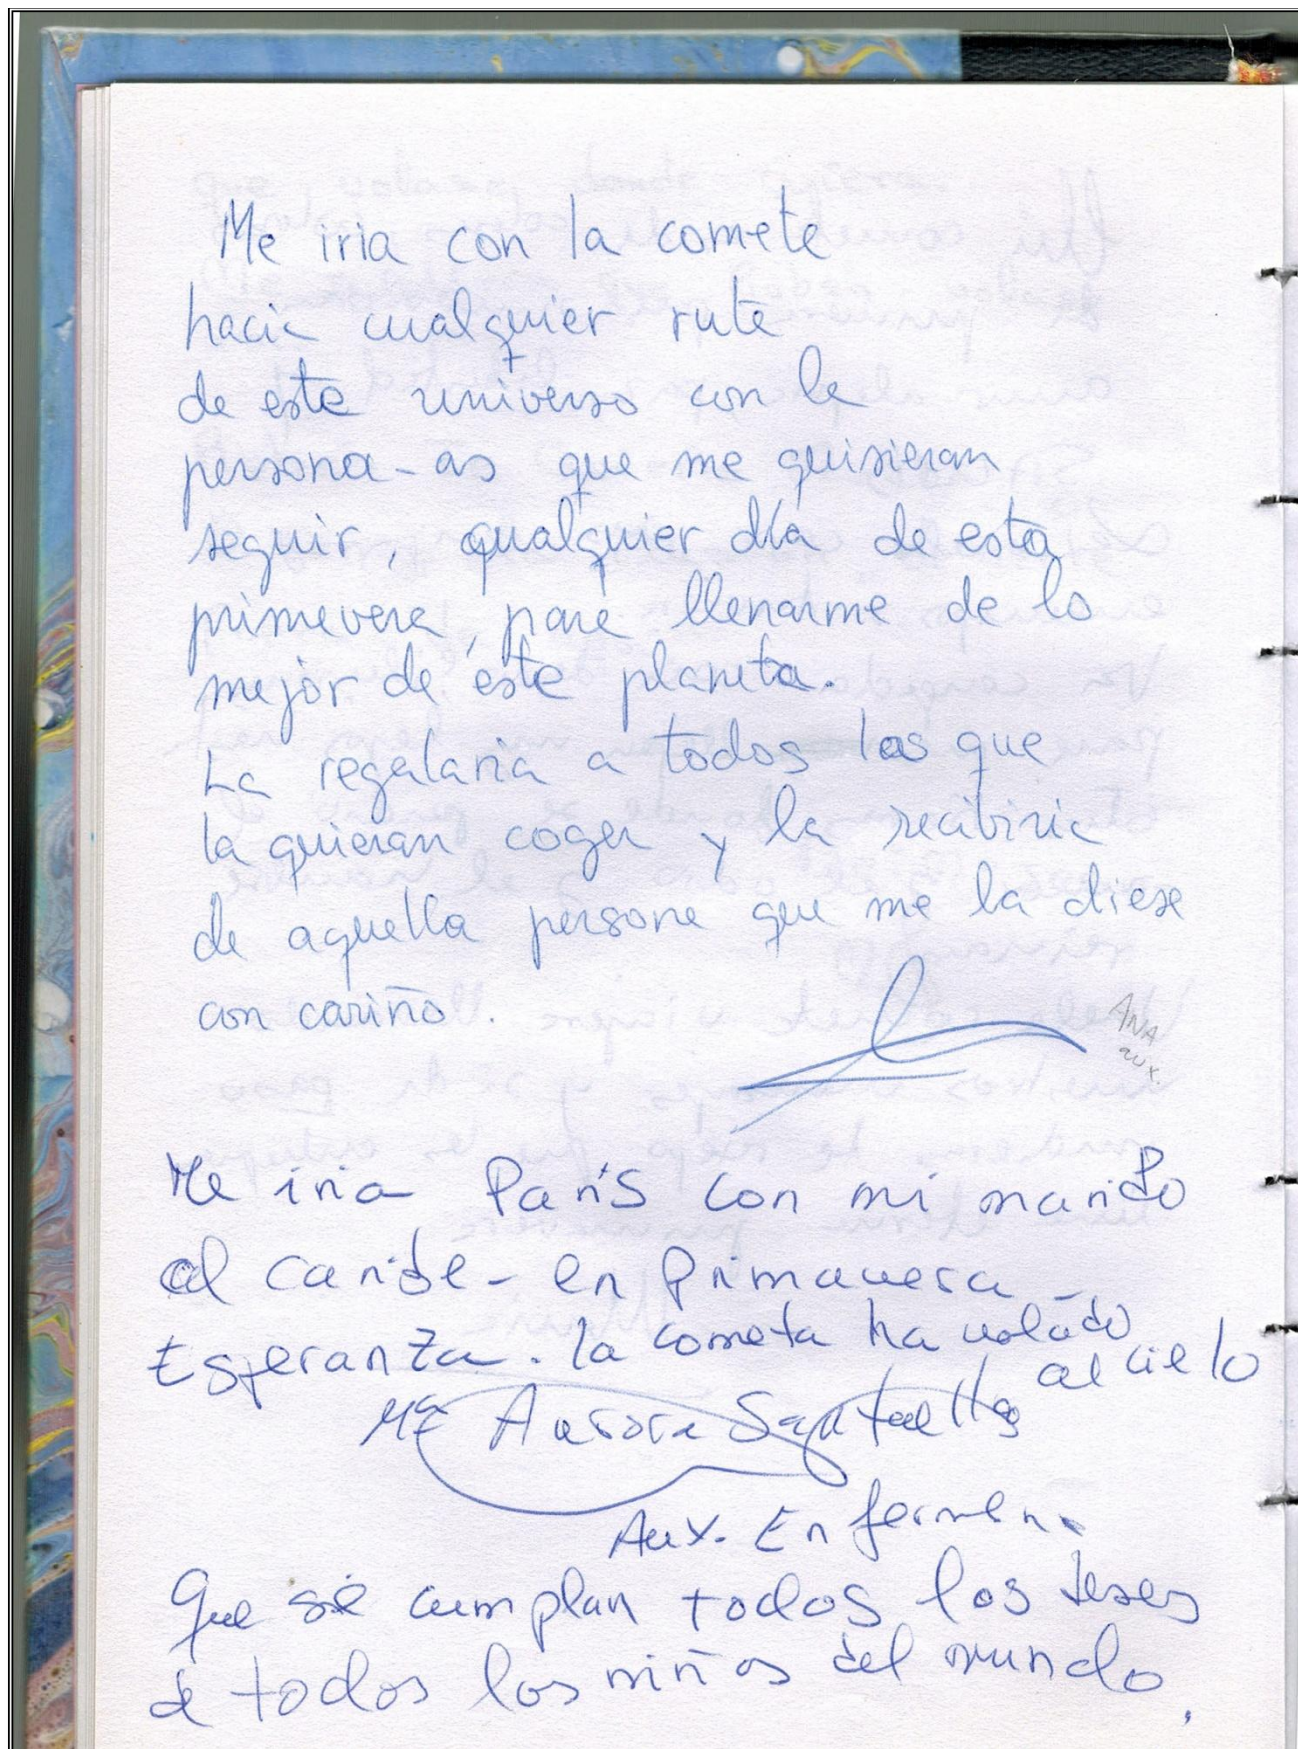 Me iria con la comete
hacia cualquier ruta
de este universo con la
persona-as que me quisieran
seguir, qualquier día de esta
primevera, para llenarme de lo
mejor de este planeta.
La regalaria a todos los que
la quieran coger y la recibiria
de aquella persona que me la diese
con cariño.
ANA
aux.
Me iria París con mi marido
al caribe - en Primavera
Esperanza. la cometa ha volado
al cielo
Mª Aurora
Aux. Enfermer.
Que se cumplan todos los deseos
de todos los niños del mundo.